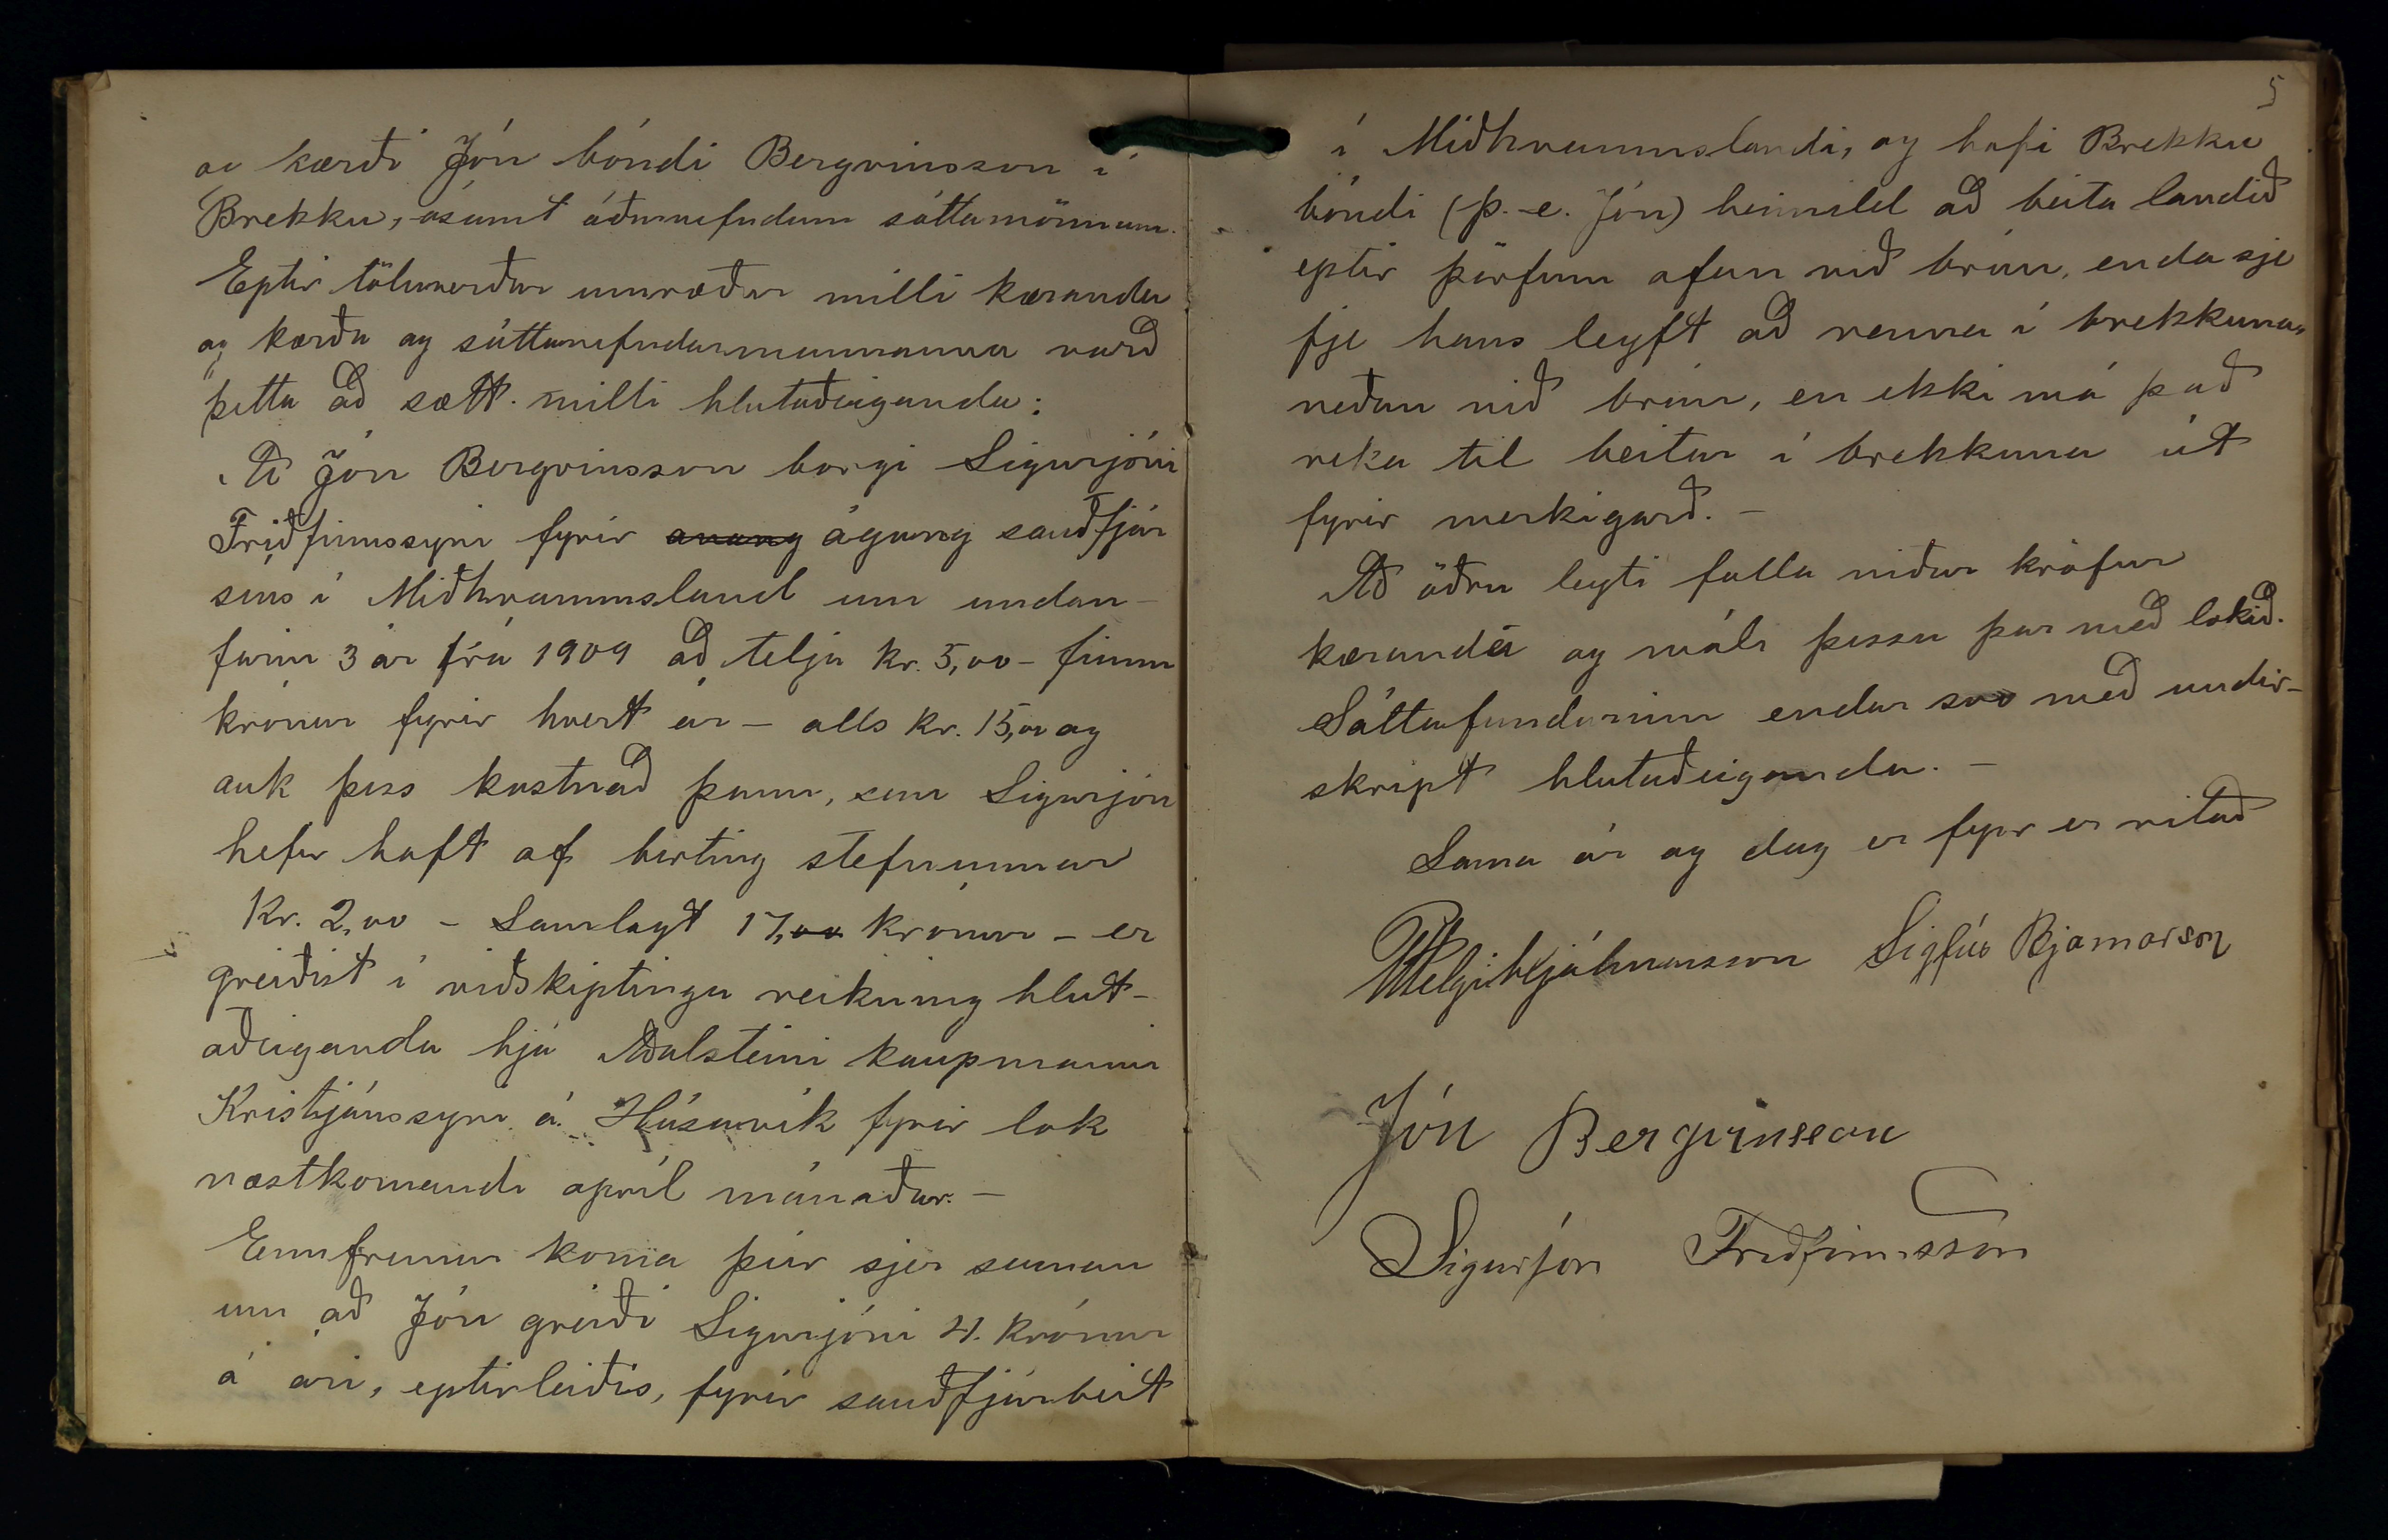 og kærði Jón bóndi Bergvinsson í
Brekku, ásamt áðurnefndum sáttamönnum.
Eptir töluverðar umræður milli kæranda
og kærða og sáttanefndarmannanna varð
þetta að sætt milli hlutaðeiganda:
Að Jón Bergvinsson borgi Sigurjóni
Friðfinnssyni fyrir ágang sauðfjár
síns í Miðhvammsland um undan-
farin 3 ár frá 1909 að telja kr. 5,00 - fimm
krónur fyrir hvert ár - alls kr. 15,00 og
auk þess kostnað þann, sem Sigurjón
hefur haft af birting stefnunnar
Kr. 2,00 - Samlagt 17,00 krónur - er
greiðist í viðskiptinga reikning hlut-
aðeiganda hjá Aðalsteini kaupmanni
Kristjánssyni á Húsavík fyrir lok
næstkomandi apríl mánaðar. -
Ennfremur koma þeir sjer saman
um að Jón greiði Sigurjóni 4. krónur
á ári, eptirleiðis, fyrir sauðfjárbeit
5
í Miðhvammslandi, og hafi Brekku
bóndi (þ. e. Jón) heimild að beita landið
eptir þörfum ofan við brún, enda sje
fje hans leyft að renna í brekkuna
neðan við brún, en ekki má það
reka til beitar í brekkuna út
fyrir merkigarð. -
Að öðru leyti falla niður kröfur
kæranda og máli þessu þar með lokið.
Sáttafundurinn endar svo með undir-
skript hlutaðeiganda. -
Sama ár og dag er fyr er ritað
Helgi Hjálmarsson Sigfús Bjarnarson
Jón Bergvinsson
Sigurjón Friðfinnsson